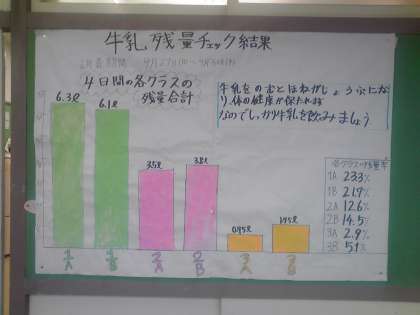 牛乳残量チェック結果
4日間の各クラスの
残量合計
牛乳をのむとほねがじょうぶにな
り、体の健康が保たれます
なのでしっかり牛乳を飲みましょう
6.3ℓ
6.1ℓ
3.5ℓ
3.8ℓ
0.95ℓ
1.45ℓ
1A
1B
2A
2B
3A
3B
各クラスの残量率
1A 23.3%
1B 21.7%
2A 12.6%
2B 14.5%
3A 2.9%
3B 5.1%